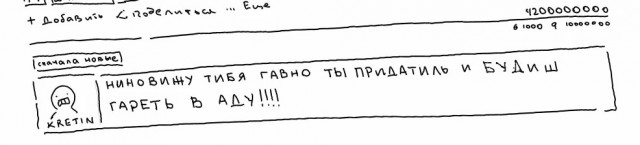 + Добавить < Поделиться ... Еще
4200000000
61000 9 1000000
сначала новые
НИНОВИЖУ ТИБЯ ГАВНО ТЫ ПРИДАТИЛЬ И БУДИШ
ГАРЕТЬ В АДУ!!!!
KRETIN